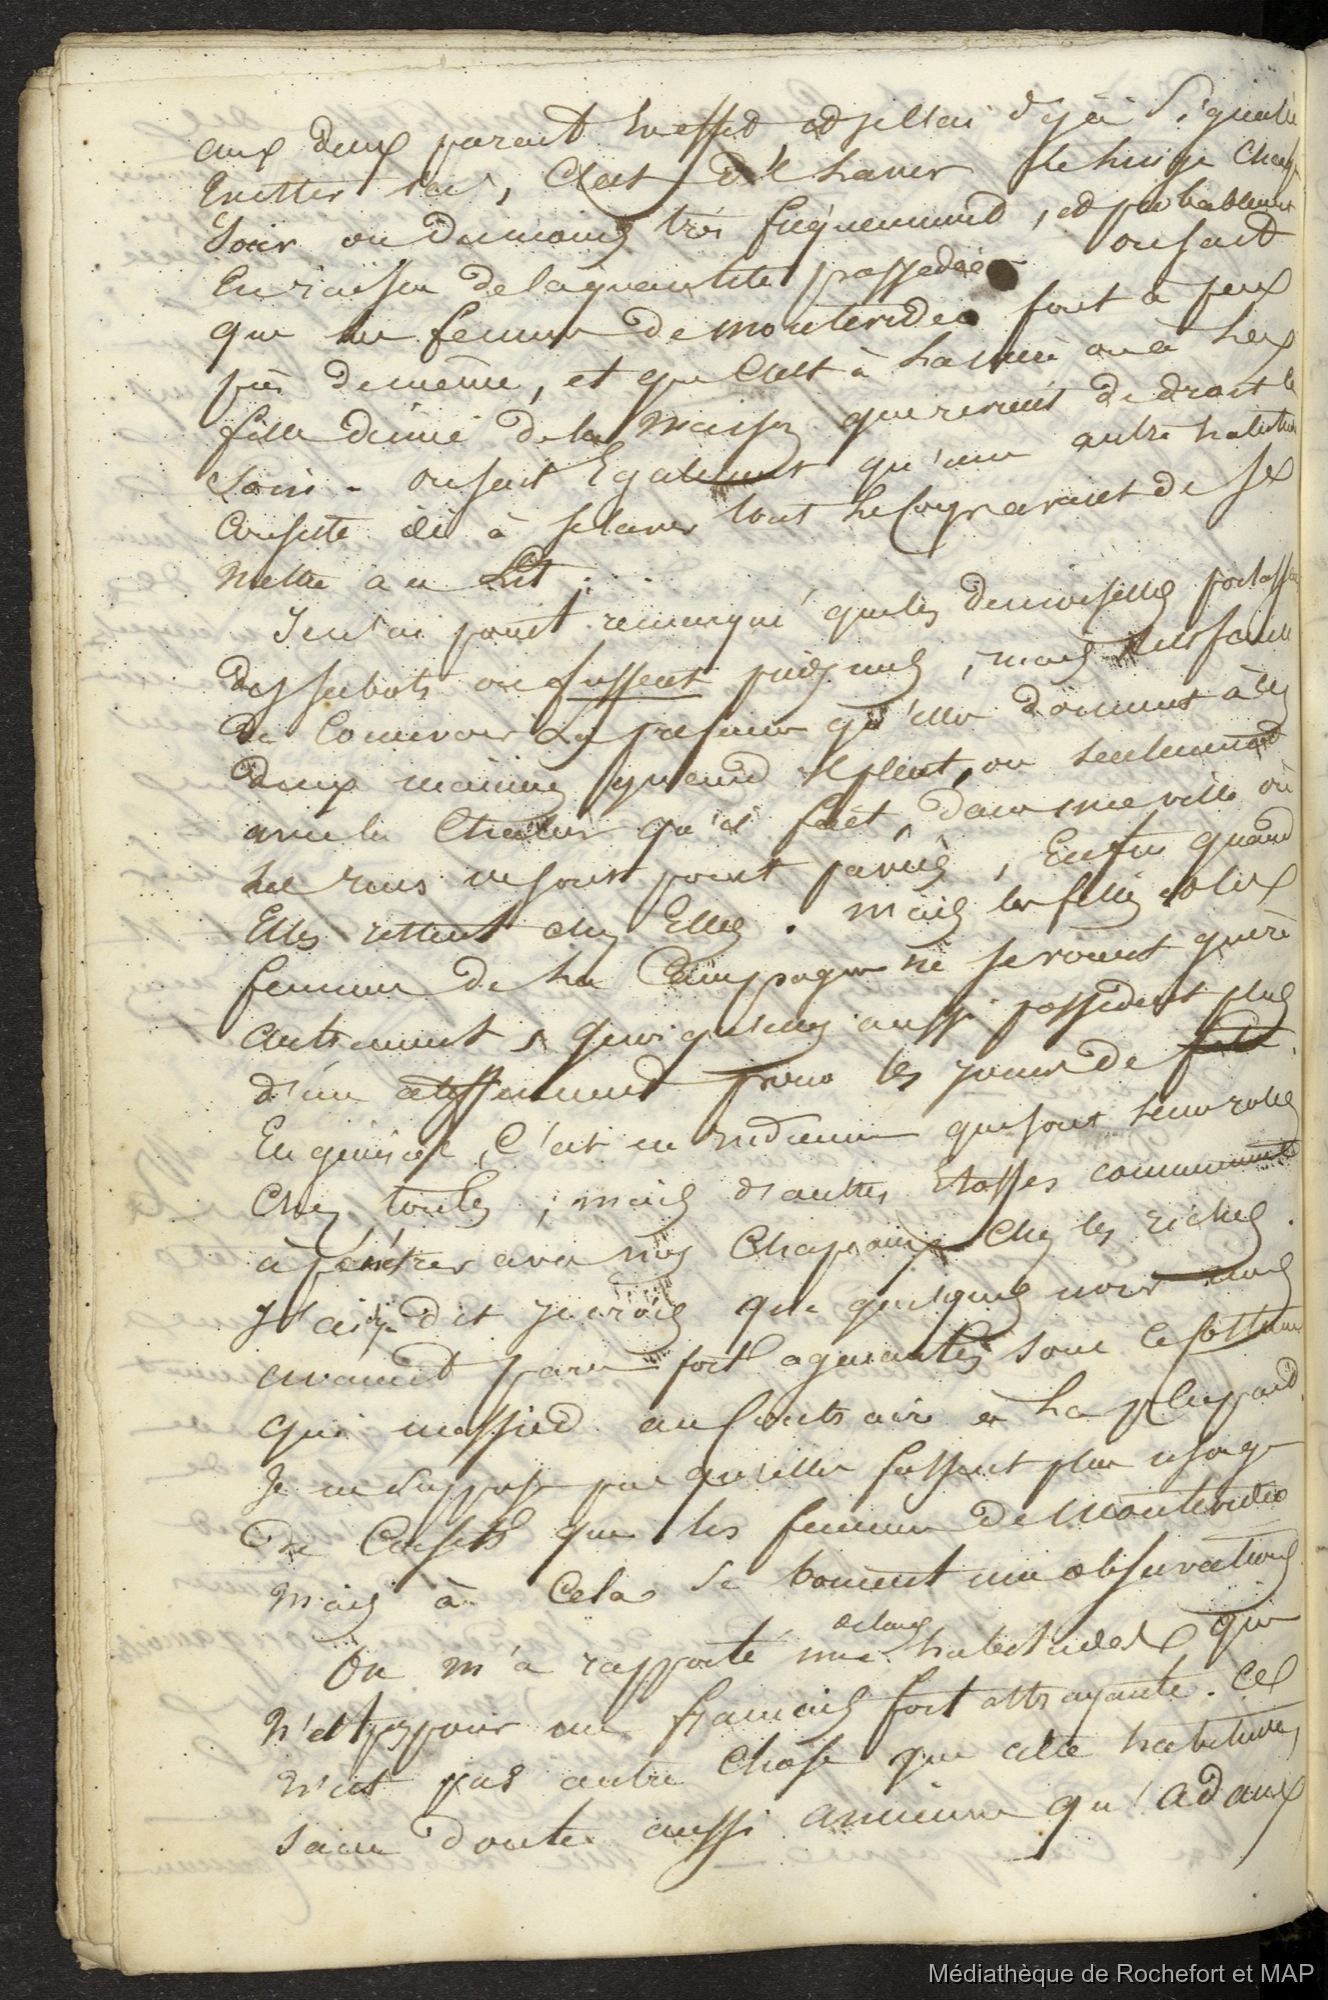 aux deux parent en effet et je l'ai déjà signalé
c'est de laver le linge chaque
soir ou du moins très fréquemment, et probablement
en raison de la quantité possedée on sait
que les femmes de montevideo font à peu
près de même, et que c'est à la mère ou à la
fille ainée de la maison que revient de droit le
soin. on sait Egalement qu'une autre habitude
consiste ici à se laver tout le corps avant de se
mettre au Lit.
Je n'ai point remarqué que les demoiselles portassent
des sabots ou fussent pieds nuds, mais
de
deux quand il pleut, ou seulement
avec la chaleur qu'il fait, dans une ville où
les rues ne sont point pavées, Enfin quand
Elles restent chez Elles. mais les filles et les
femmes de la Campagne ne se voient guère
autrement, quoiqu'elles aussi possedent plus
d'un pour les jours de fête.
En général, c'est en indienne que sont leurs robes
chez toutes; mais d'autres Etoffes commencent
à pénétrer avec nos Chapeaux chez les riches.
J'ai dit je crois que quelques unes nous
avaient paru fort agréables sous ce costume
qui messied au contraire à la plupart.
Je ne suppose pas qu'elles fassent plus usage
de Corsets que les femmes de Montevideo
mais à cela se bornent mes observations
On m'a rapporté une habitude que
n'est pas pour un français fort attrayante. Ce
n'est pas autre chose que cette habitude,
sans doute aussi ancienne qu'adam
Médiathèque de Rochefort et MAP